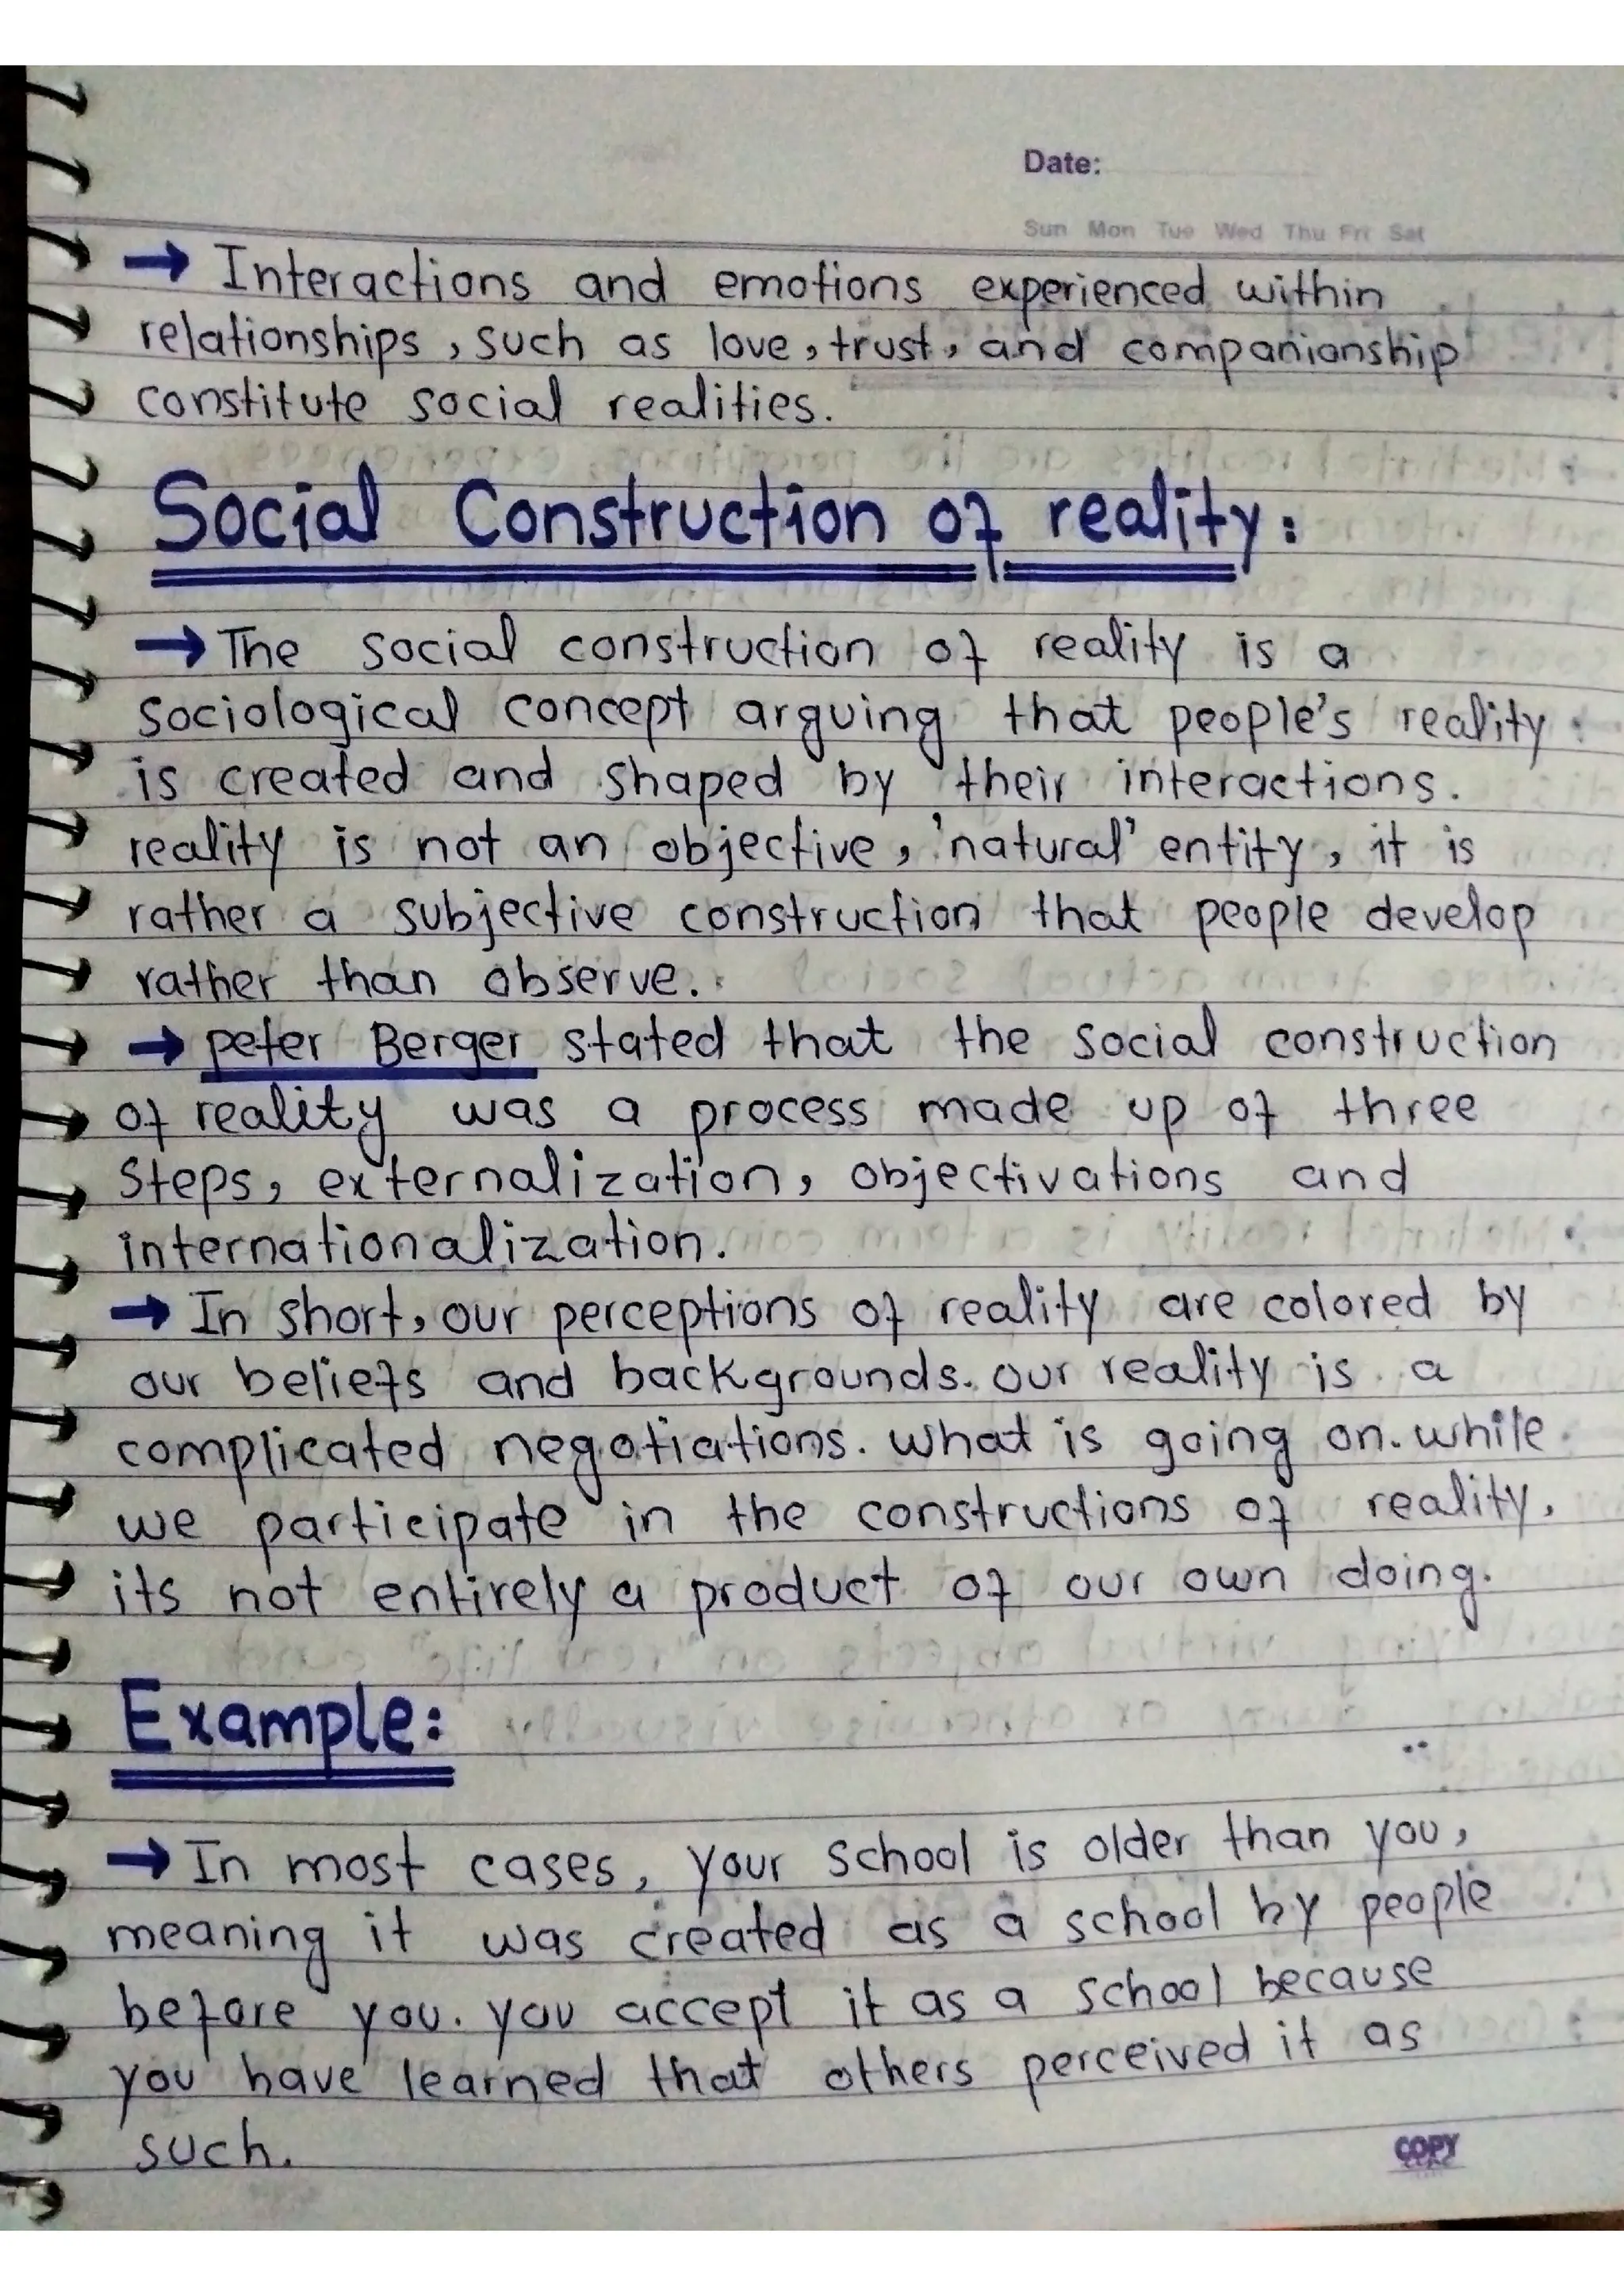 Date:
Sun Mon Tue Wed Thu Fri Sat
→ Interactions and emotions experienced within
relationships, such as love, trust, and companionship
constitute social realities.
Social Construction of reality:
→ The social construction of reality is a
sociological concept arguing that people's reality
is created and shaped by their interactions.
reality is not an objective, 'natural' entity, it is
rather a subjective construction that people develop
rather than observe.
→ peter Berger stated that the social construction
of reality was a process made up of three
Steps, externalization, objectivations and
internationalization.
→ In short, our perceptions of reality are colored by
our beliefs and backgrounds. our reality is a
complicated negotiations. what is going on. while
we participate in the constructions of reality,
its not entirely a product of our own doing.
Example:
→ In most cases, your school is older than you,
meaning it was created as a school by people
before you. you accept it as a school because
you have learned that others perceived it as
such.
COPY